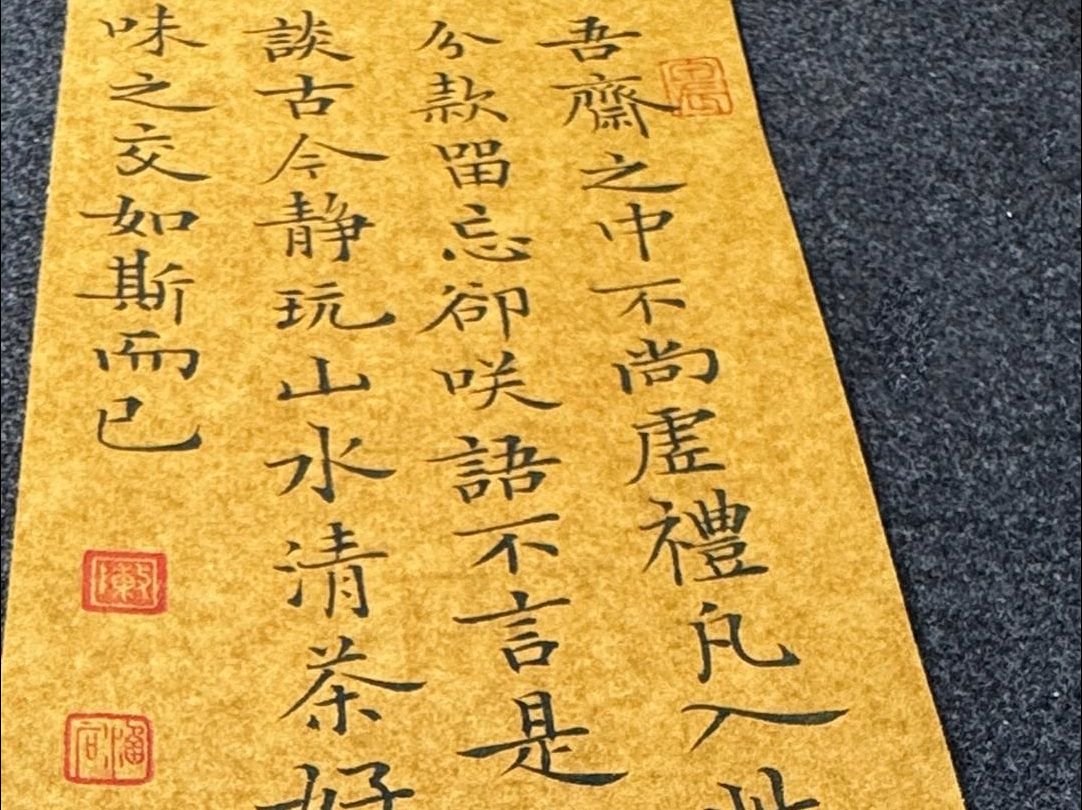 吾齋之中不尚虛禮凡入此
分款留忘卻咲語不言是
談古今静玩山水清茶好
味之交如斯而已